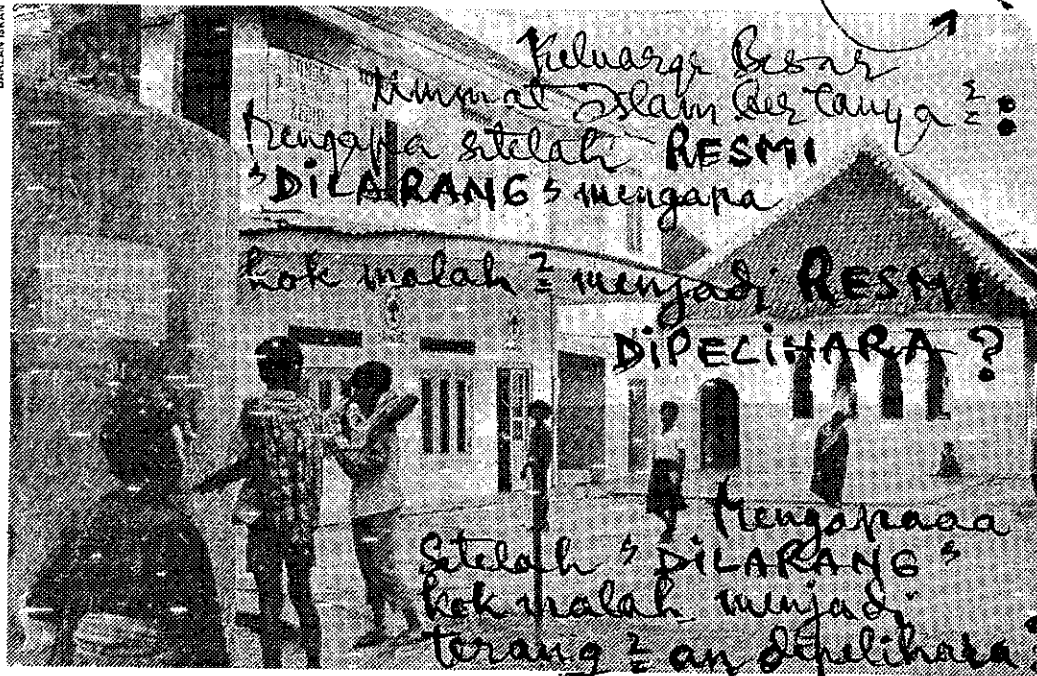 DAHLAN ISKAN
Keluarga Besar
Ummat Islam bertanya ²:
Mengapa setelah RESMI
"DILARANG" mengapa
kok malah ² menjadi RESMI
DIPELIHARA ?
Mengapaaa
Setelah "DILARANG"
kok malah menjadi
terang ² an dipelihara ?